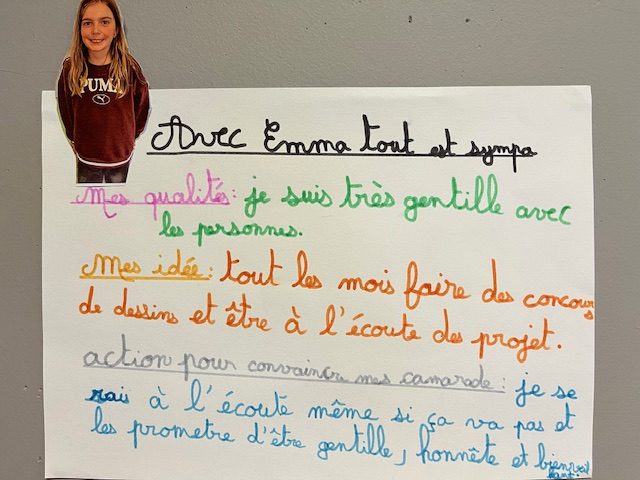 PUMA
Avec Emma tout est sympa
Mes qualités: je suis très gentille avec
les personnes.
Mes idée: tout les mois faire des concours
de dessins et être à l'écoute des projet.
action pour convaincre mes camarade: je se
rais à l'écoute même si ça va pas et
les prometre d'être gentille, honnête et bienveil
lant.